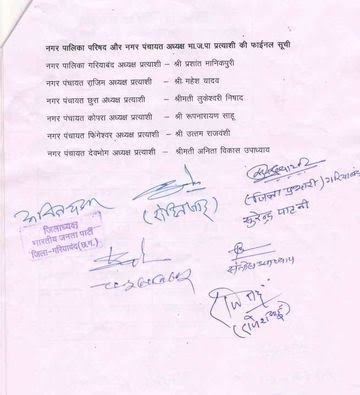 नगर पालिका परिषद और नगर पंचायत अध्यक्ष भा.ज.पा प्रत्याशी की फाईनल सूची
नगर पालिका गरियाबंद अध्यक्ष प्रत्याशी – श्री प्रशांत मानिकपुरी
नगर पंचायत राजिम अध्यक्ष प्रत्याशी – श्री महेश यादव
नगर पंचायत छुरा अध्यक्ष प्रत्याशी – श्रीमती लुकेश्वरी निषाद
नगर पंचायत कोपरा अध्यक्ष प्रत्याशी – श्री रूपनारायण साहू
नगर पंचायत फिंगेश्वर अध्यक्ष प्रत्याशी – श्री उत्तम राजवंशी
नगर पंचायत देवभोग अध्यक्ष प्रत्याशी – श्रीमती अनिता विकास उपाध्याय
(जिला प्रभारी) गरियाबंद
जिलाध्यक्ष
भारतीय जनता पार्टी
जिला-गरियाबंद(छ.ग.)